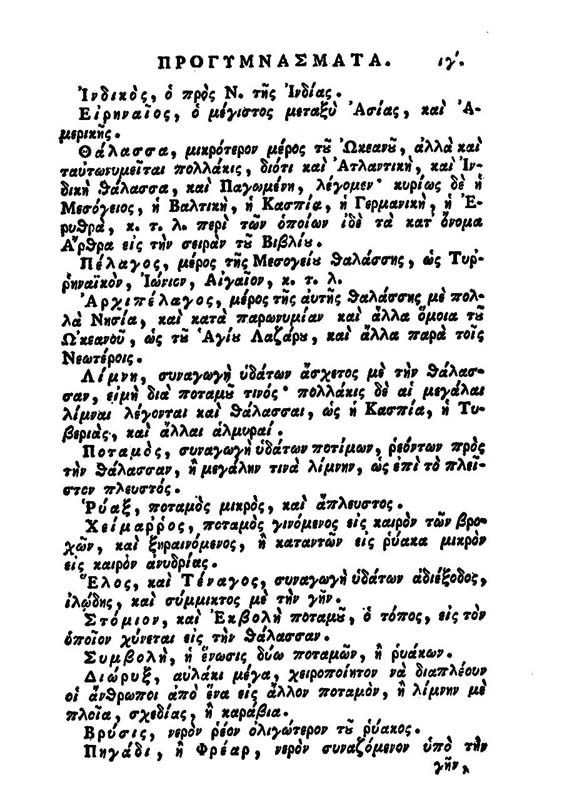 ΠΡΟΓΥΜΝΑΣΜΑΤΑ. ιγ'.
Ἰνδικὸς, ὁ πρὸς Ν. τῆς Ἰνδίας.
Εἰρηναῖος, ὁ μέγιστος μεταξὺ Ἀσίας, καὶ Ἀ-
μερικῆς.
Θάλασσα, μικρότερον μέρος τȣ͂ Ὠκεανȣ͂, ἀλλὰ καὶ
ταὐτωνυμεῖται πολλάκις, διότι καὶ Ἀτλαντικὴ, καὶ Ἰν-
δικὴ θάλασσα, καὶ Παγωμένη, λέγομεν· κυρίως δὲ ἡ
Μεσόγειος, ἡ Βαλτικὴ, ἡ Κασπία, ἡ Γερμανικὴ, ἡ Ἐ-
ρυθρὰ, κ. τ. λ. περὶ τῶν ὁποίων ἰδὲ τὰ κατ' ὄνομα
Ἄρθρα εἰς τὴν σειρὰν τȣ͂ Βιβλίȣ.
Πέλαγος, μέρος τῆς Μεσογείȣ θαλάσσης, ὡς Τυῤ-
ῥηναϊκὸν, Ἰώνιον, Αἰγαῖον, κ. τ. λ.
Ἀρχιπέλαγος, μέρος τῆς αὐτῆς θαλάσσης μὲ πολ-
λὰ Νησία, καὶ κατὰ παρωνυμίαν καὶ ἄλλα ὅμοια τȣ͂
Ὠκεανȣ͂, ὡς τȣ͂ Ἁγίȣ Λαζάρȣ, καὶ ἄλλα παρὰ τοῖς
Νεωτέροις.
Λίμνη, συναγωγὴ ὑδάτων ἄσχετος μὲ τὴν θάλασ-
σαν, εἰμὴ διὰ ποταμȣ͂ τινός· πολλάκις δὲ αἱ μεγάλαι
λίμναι λέγονται καὶ θάλασσαι, ὡς ἡ Κασπία, ἡ Τι-
βεριὰς, καὶ ἄλλαι ἁλμυραί.
Ποταμὸς, συναγωγὴ ὑδάτων ποτίμων, ῥεόντων πρὸς
τὴν θάλασσαν, ἢ μεγάλην τινὰ λίμνην, ὡς ἐπὶ τὸ πλεῖ-
στον πλευστός.
Ῥύαξ, ποταμὸς μικρὸς, καὶ ἄπλευστος.
Χείμαῤῥος, ποταμὸς γινόμενος εἰς καιρὸν τῶν βρο-
χῶν, καὶ ξηραινόμενος, ἢ καταντῶν εἰς ῥύακα μικρὸν
εἰς καιρὸν ἀνυδρίας.
Ἕλος, καὶ Τέναγος, συναγωγὴ ὑδάτων ἀδιέξοδος,
ἰλώδης, καὶ σύμμικτος μὲ τὴν γῆν.
Στόμιον, καὶ Ἐκβολὴ ποταμȣ͂, ὁ τόπος, εἰς τὸν
ὁποῖον χύνεται εἰς τὴν θάλασσαν.
Συμβολὴ, ἡ ἕνωσις δύω ποταμῶν, ἢ ῥυάκων.
Διώρυξ, αὐλάκι μέγα, χειροποίητον νὰ διαπλέουν
οἱ ἄνθρωποι ἀπὸ ἕνα εἰς ἄλλον ποταμὸν, ἢ λίμνην μὲ
πλοῖα, σχεδίας, ἢ καράβια.
Βρύσις, νερὸν ῥέον ὀλιγώτερον τȣ͂ ῥύακος.
Πηγάδι, ἢ Φρέαρ, νερὸν συναζόμενον ὑπὸ τὴν
γῆν,